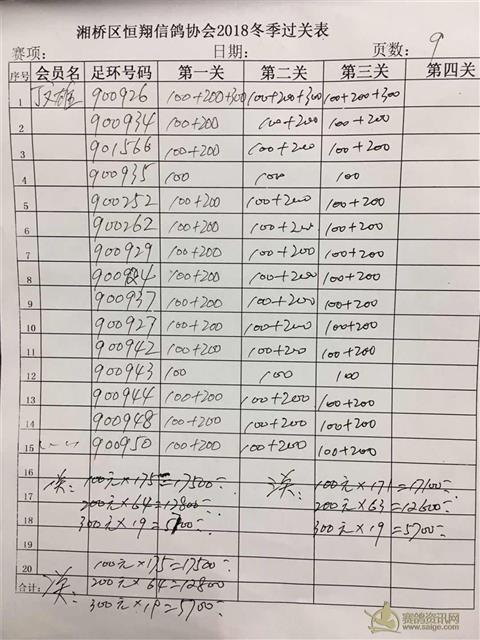 湘桥区恒翔信鸽协会2018冬季过关表
赛项: 日期: 页数: 9
序号 会员名 足环号码 第一关 第二关 第三关 第四关
1 丁文雄 900926 100+200+300 100+200+300 100+200+300
2 900934 100+200 100+200 100+200
3 901566 100+200 100+200 100+200
4 900935 100 100 100
5 900252 100+200 100+200 100+200
6 900262 100+200 100+200 100+200
7 900929 100+200 100+200 100+200
8 900924 100+200 100+200 100+200
9 900937 100+200 100+200 100+200
10 900927 100+200 100+200 100+200
11 900942 100+200 100+200 100+200
12 900943 100 100 100
13 900944 100+200 100+200 100+200
14 900948 100+200 100+200 100+200
15 900950 100+200 100+200 100+200
16 100元×175=17500 100元×171=17100
17 200元×64=12800 200元×63=12600
18 300元×19=5700 300元×19=5700
19
20 100元×175=17500
合计: 200元×64=12800
300元×19=5700
赛鸽资讯网
www.saige.com